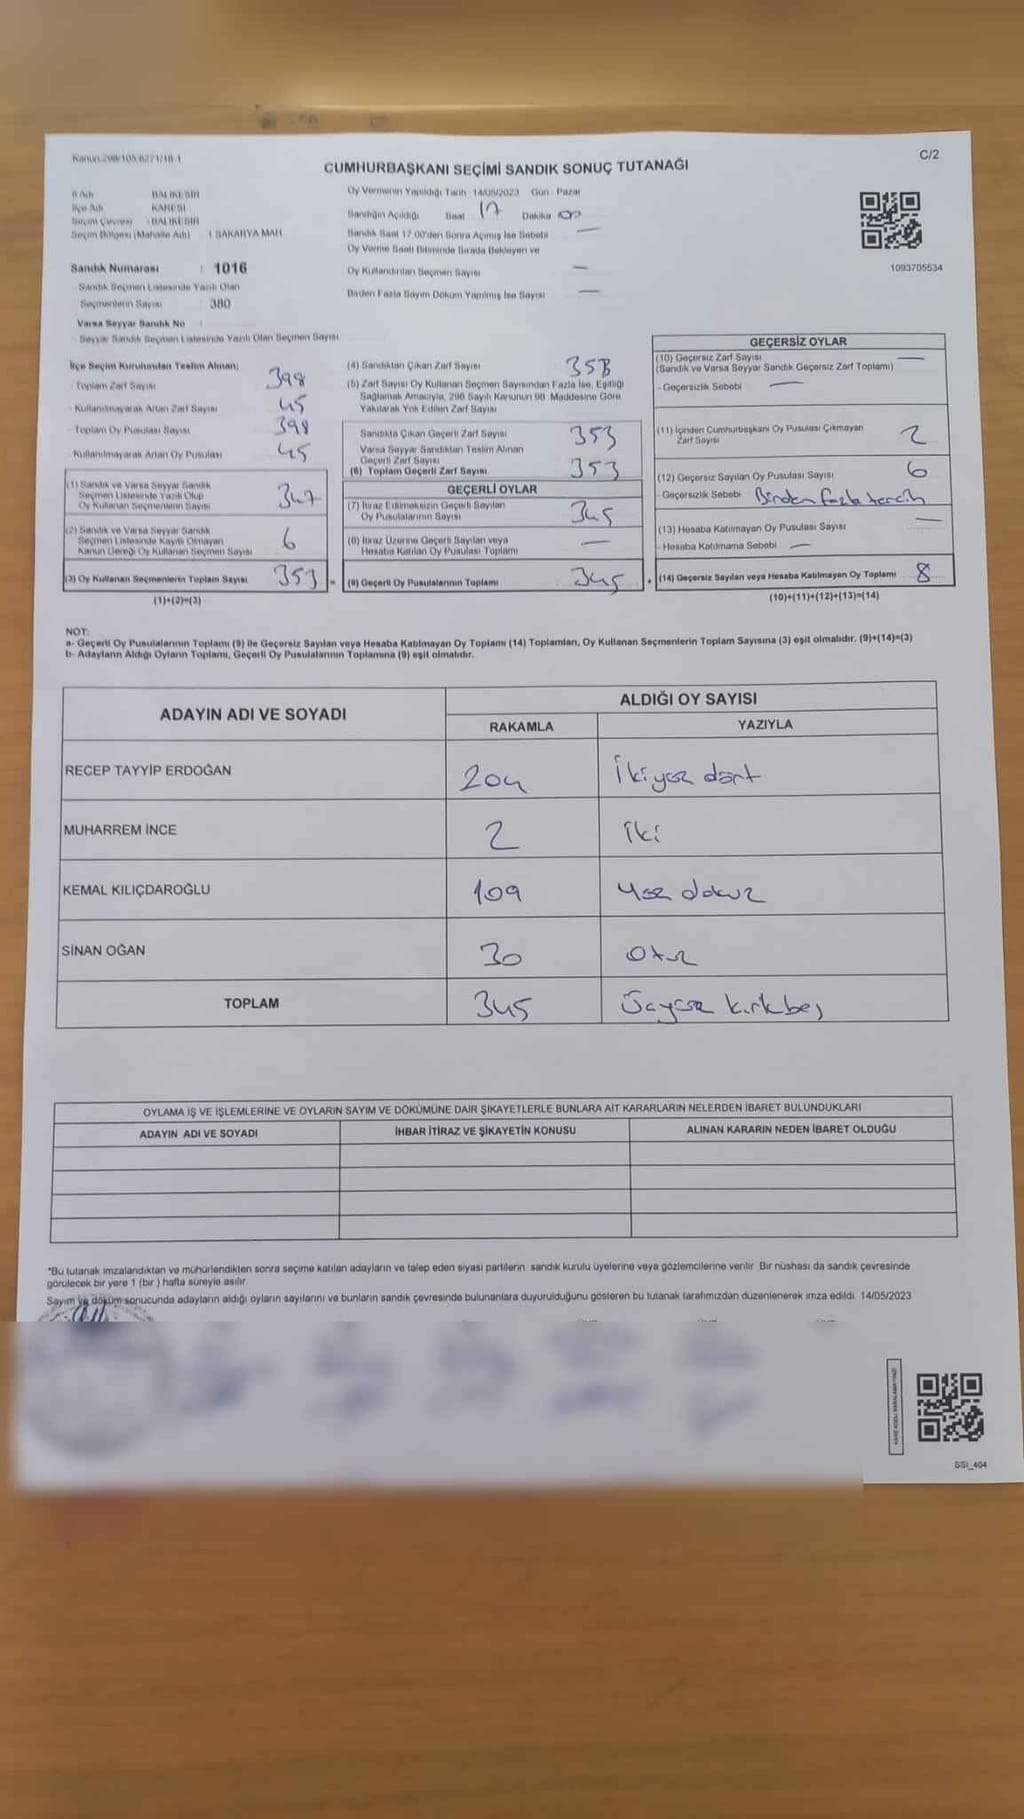 Kanun:298/105,6271/18-1
C/2
CUMHURBAŞKANI SEÇİMİ SANDIK SONUÇ TUTANAĞI
İl Adı : BALIKESİR
İlçe Adı : KARESİ
Seçim Çevresi : BALIKESİR
Seçim Bölgesi (Mahalle Adı) : SAKARYA MAH
Sandık Numarası : 1016
- Sandık Seçmen Listesinde Yazılı Olan
Seçmenlerin Sayısı : 380
Varsa Seyyar Sandık No :
- Seyyar Sandık Seçmen Listesinde Yazılı Olan Seçmen Sayısı
Oy Vermenin Yapıldığı Tarih 14/05/2023 Gün Pazar
Sandığın Açıldığı Saat 17 Dakika 00
Sandık Saat 17:00'den Sonra Açmış İse Sebebi —
Oy Verme Saati Bitiminde Sırada Bekleyen ve
Oy Kullandırılan Seçmen Sayısı —
Birden Fazla Sayım Döküm Yapılmış İse Sayısı —
1093705534
İlçe Seçim Kurulundan Teslim Alınan;
- Toplam Zarf Sayısı 398
- Kullanılmayarak Artan Zarf Sayısı 45
- Toplam Oy Pusulası Sayısı 398
- Kullanılmayarak Artan Oy Pusulası 45
(1) Sandık ve Varsa Seyyar Sandık
Seçmen Listesinde Yazılı Olup
Oy Kullanan Seçmenlerin Sayısı 347
(2) Sandık ve Varsa Seyyar Sandık
Seçmen Listesinde Kayıtlı Olmayan
Kanun Gereği Oy Kullanan Seçmen Sayısı 6
(3) Oy Kullanan Seçmenlerin Toplam Sayısı 353 =
(1)+(2)=(3)
(4) Sandıktan Çıkan Zarf Sayısı 353
(5) Zarf Sayısı Oy Kullanan Seçmen Sayısından Fazla İse, Eşitliği
Sağlamak Amacıyla, 298 Sayılı Kanunun 98. Maddesine Göre
Yakılarak Yok Edilen Zarf Sayısı
Sandıkta Çıkan Geçerli Zarf Sayısı 353
Varsa Seyyar Sandıktan Teslim Alınan
Geçerli Zarf Sayısı
(6) Toplam Geçerli Zarf Sayısı 353
GEÇERLİ OYLAR
(7) İtiraz Edilmeksizin Geçerli Sayılan
Oy Pusulalarının Sayısı 345
(8) İtiraz Üzerine Geçerli Sayılan veya
Hesaba Katılan Oy Pusulası Toplamı —
(9) Geçerli Oy Pusulalarının Toplamı 345 +
GEÇERSİZ OYLAR
(10) Geçersiz Zarf Sayısı —
(Sandık ve Varsa Seyyar Sandık Geçersiz Zarf Toplamı)
- Geçersizlik Sebebi —
(11) İçinden Cumhurbaşkanı Oy Pusulası Çıkmayan
Zarf Sayısı 2
(12) Geçersiz Sayılan Oy Pusulası Sayısı 6
- Geçersizlik Sebebi Birden fazla tercih
(13) Hesaba Katılmayan Oy Pusulası Sayısı —
- Hesaba Katılmama Sebebi —
(14) Geçersiz Sayılan veya Hesaba Katılmayan Oy Toplamı 8
(10)+(11)+(12)+(13)=(14)
NOT:
a- Geçerli Oy Pusulalarının Toplamı (9) ile Geçersiz Sayılan veya Hesaba Katılmayan Oy Toplamı (14) Toplamları, Oy Kullanan Seçmenlerin Toplam Sayısına (3) eşit olmalıdır. (9)+(14)=(3)
b- Adayların Aldığı Oyların Toplamı, Geçerli Oy Pusulalarının Toplamına (9) eşit olmalıdır.
ADAYIN ADI VE SOYADI
ALDIĞI OY SAYISI
RAKAMLA YAZIYLA
RECEP TAYYİP ERDOĞAN 204 İkiyüz dört
MUHARREM İNCE 2 iki
KEMAL KILIÇDAROĞLU 109 Yüz dokuz
SİNAN OĞAN 30 Otuz
TOPLAM 345 Üçyüz kırkbeş
OYLAMA İŞ VE İŞLEMLERİNE VE OYLARIN SAYIM VE DÖKÜMÜNE DAİR ŞİKAYETLERLE BUNLARA AİT KARARLARIN NELERDEN İBARET BULUNDUKLARI
ADAYIN ADI VE SOYADI İHBAR İTİRAZ VE ŞİKAYETİN KONUSU ALINAN KARARIN NEDEN İBARET OLDUĞU
*Bu tutanak imzalandıktan ve mühürlendikten sonra seçime katılan adayların ve talep eden siyasi partilerin sandık kurulu üyelerine veya gözlemcilerine verilir. Bir nüshası da sandık çevresinde
görülecek bir yere 1 (bir ) hafta süreyle asılır.
Sayım ve döküm sonucunda adayların aldığı oyların sayılarını ve bunların sandık çevresinde bulunanlara duyurulduğunu gösteren bu tutanak tarafımızdan düzenlenerek imza edildi. 14/05/2023
SSI_404